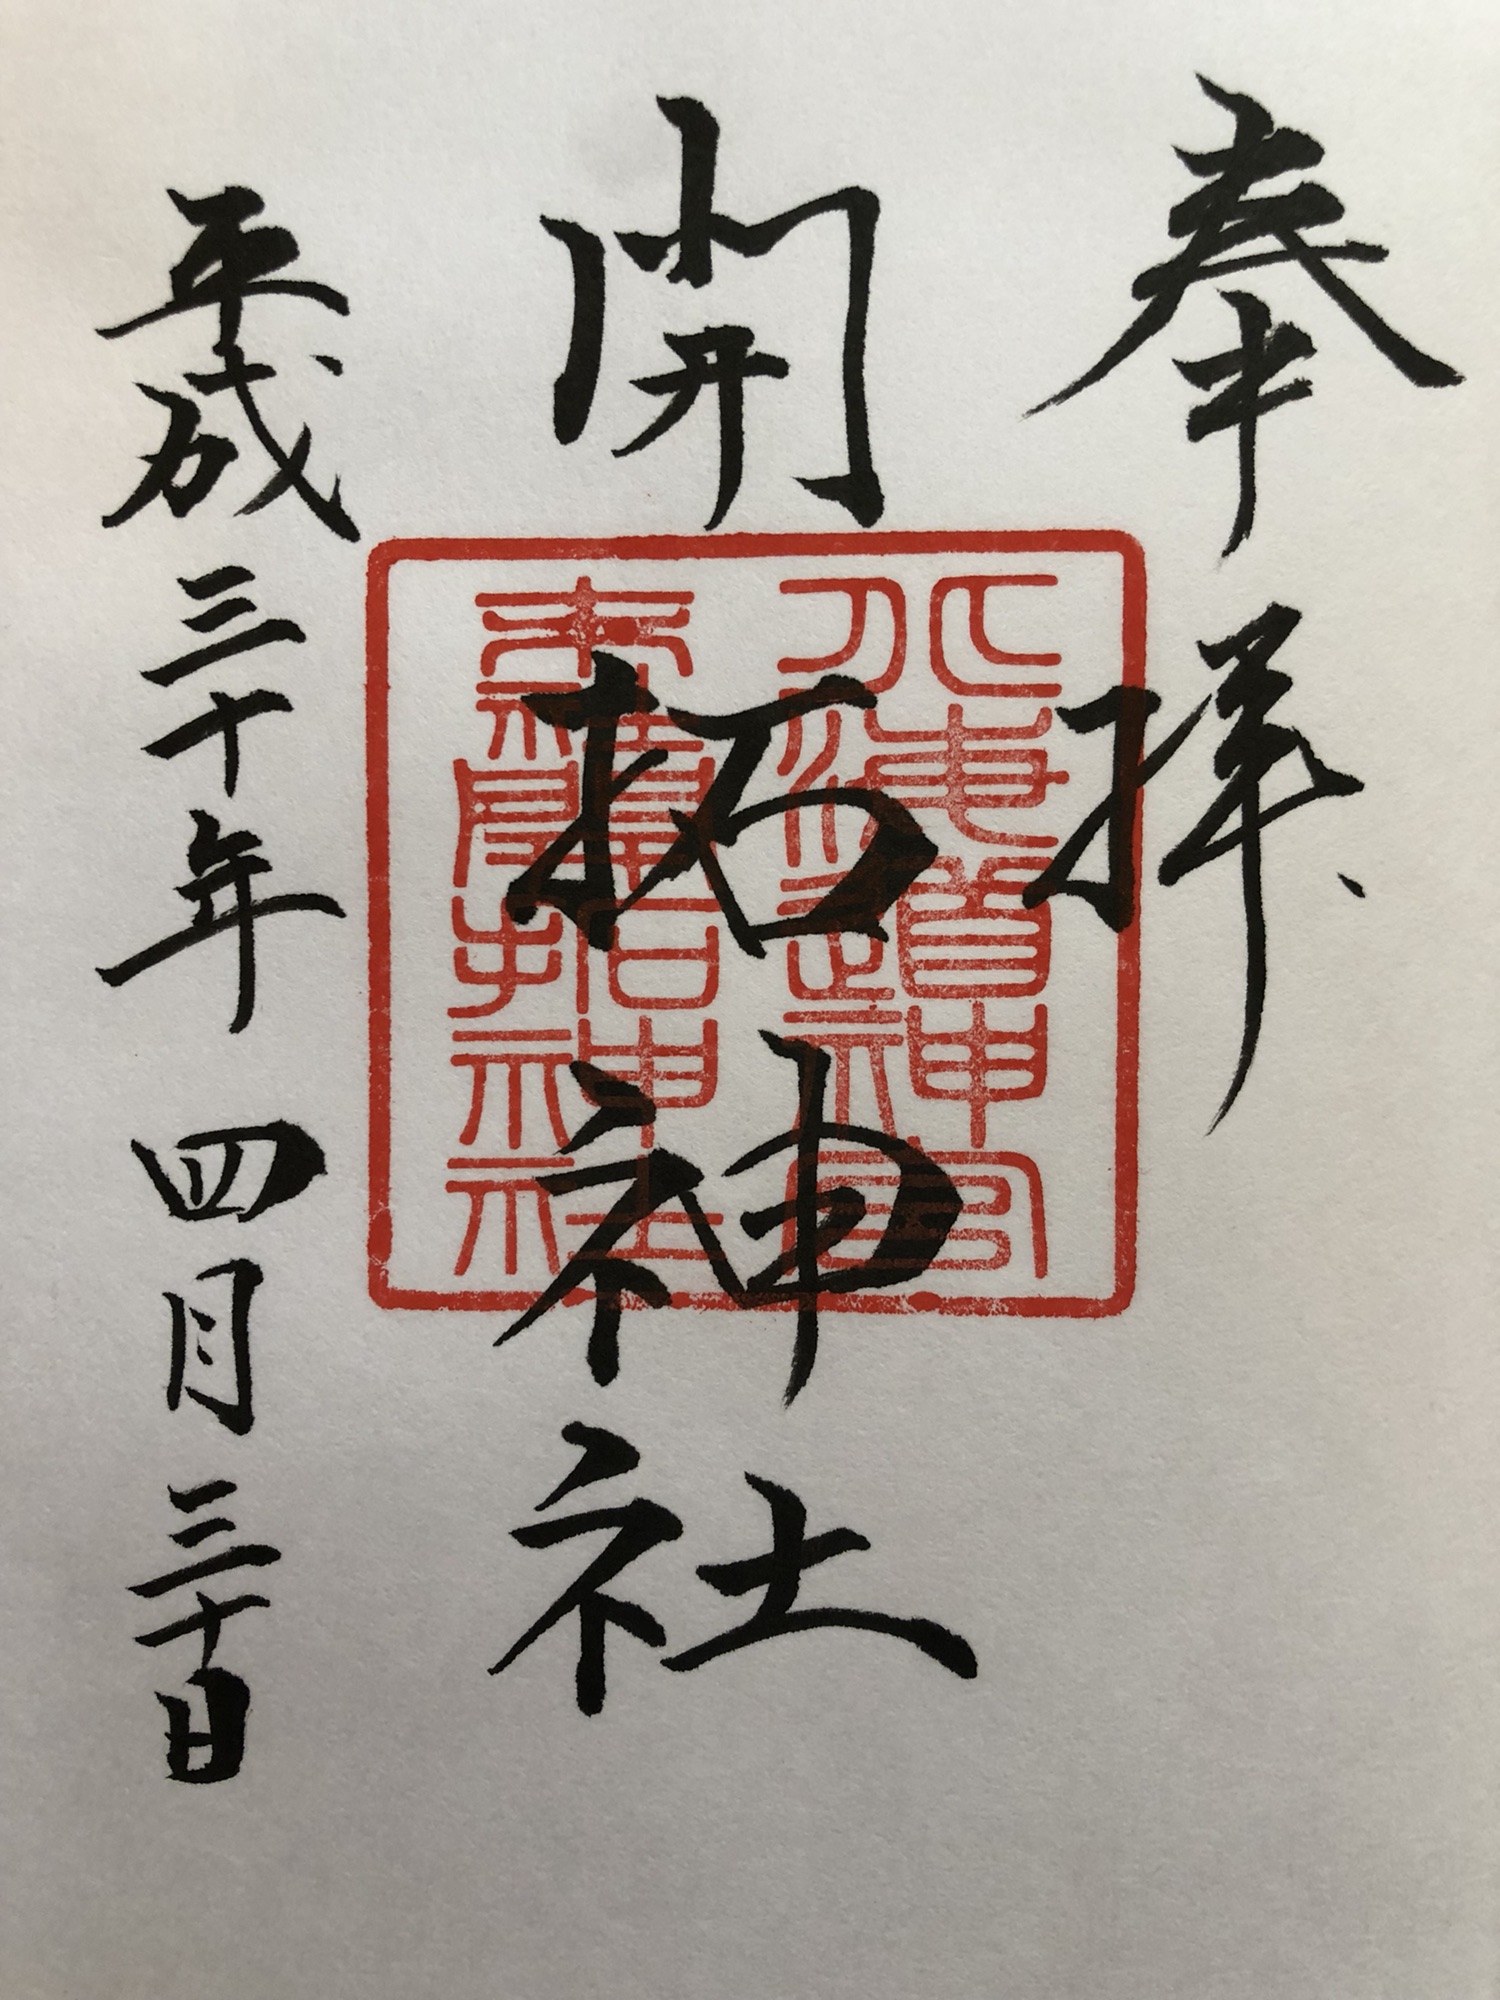 奉拝
開拓神社
平成三十年 四月三十日
北海道神宮
末廣開拓神社